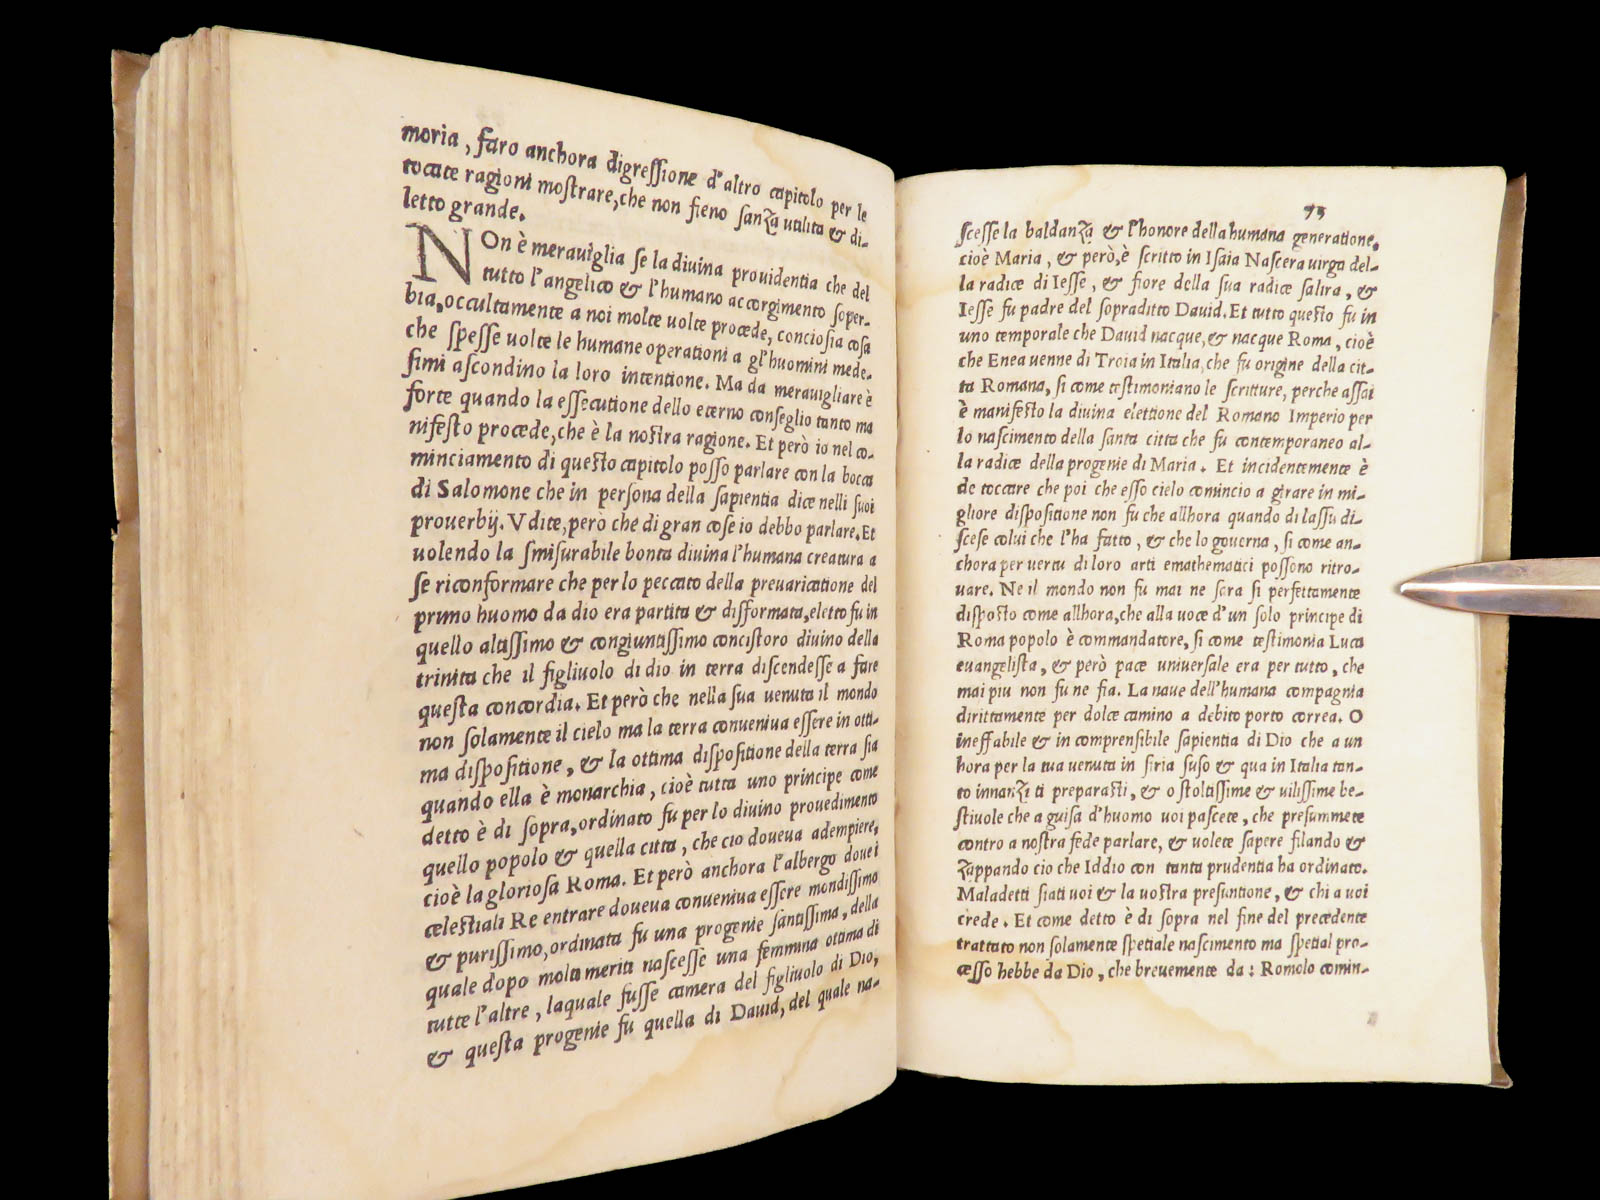 moria, faro anchora digreſſione d'altro capitolo per le
tocate ragioni mostrare, che non fieno ſanza utilita & di-
letto grande.
NOn è merauiglia ſe la diuina prouidentia che del
tutto l'angelico & l'humano accorgimento ſoper-
bia, occultamente a noi molte uolte procede, concioſia coſa
che ſpeſſe uolte le humane operationi a gl'huomini mede-
ſimi aſcondino la loro intentione. Ma da merauigliare è
forte quando la eſſecutione dello eterno conſeglio tanto ma
nifeſto procede, che è la noſtra ragione. Et però io nel co-
minciamento di queſto capitolo poſſo parlare con la bocca
di Salomone che in perſona della ſapientia dice nelli ſuoi
prouerbij. Vdite, però che di gran coſe io debbo parlare. Et
uolendo la ſmiſurabile bonta diuina l'humana creatura a
ſe riconformare che per lo peccato della preuaricatione del
primo huomo da dio era partita & disformata, eletto fu in
quello altiſſimo & congiuntiſſimo conciſtoro diuino della
trinita che il figliuolo di dio in terra diſcendeſſe a fare
queſta concordia. Et però che nella ſua uenuta il mondo
non ſolamente il cielo ma la terra conueniua eſſere in otti-
ma diſpoſitione, & la ottima diſpoſitione della terra ſia
quando ella è monarchia, cioè tutta uno principe come
detto è di ſopra, ordinato fu per lo diuino prouedimento
quello popolo & quella citta, che cio doueua adempiere,
cioè la glorioſa Roma. Et però anchora l'albergo doue i
celeſtiali Re entrare doueua conueniua eſſere mondiſſimo
& puriſſimo, ordinata fu una progenie ſantiſſima, della
quale dopo molti meriti naſceſſe una femmina ottima di
tutte l'altre, laquale fuſſe camera del figliuolo di Dio,
& queſta progenie fu quella di Dauid, del quale na-
73
ſceſſe la baldanza & l'honore della humana generatione,
cioè Maria, & però, è ſcritto in Iſaia Naſcera uirga del-
la radice di Ieſſe, & fiore della ſua radice ſalira, &
Ieſſe fu padre del ſopraditto Dauid. Et tutto queſto fu in
uno temporale che Dauid nacque, & nacque Roma, cioè
che Enea uenne di Troia in Italia, che fu origine della cit-
ta Romana, ſi come teſtimoniano le ſcritture, perche aſſai
è manifeſto la diuina elettione del Romano Imperio per
lo naſcimento della ſanta citta che fu contemporaneo al-
la radice della progenie di Maria. Et incidentemente è
de toccare che poi che eſſo cielo comincio a girare in mi-
gliore diſpoſitione non fu che allhora quando di laſſu di-
ſceſe colui che l'ha fatto, & che lo gouerna, ſi come an-
chora per uertu di loro arti emathematici poſſono ritro-
uare. Ne il mondo non fu mai ne ſara ſi perfettamente
diſpoſto come allhora, che alla uoce d'un ſolo principe di
Roma popolo è commandatore, ſi come teſtimonia Luca
euangeliſta, & però pace uniuerſale era per tutto, che
mai piu non fu ne fia. La naue dell'humana compagnia
dirittamente per dolce camino a debito porto correa. O
ineffabile & in comprenſibile ſapientia di Dio che a un
hora per la tua uenuta in ſiria ſuſo & qua in Italia tan-
to innanzi ti preparaſti, & o ſtoltiſſime & uiliſſime be-
ſtiuole che a guiſa d'huomo uoi paſcete, che preſummete
contro a noſtra fede parlare, & uolete ſapere filando &
zappando cio che Iddio con tanta prudentia ha ordinato.
Maladetti ſiati uoi & la uoſtra preſuntione, & chi a uoi
crede. Et come detto è di ſopra nel fine del precedente
trattato non ſolamente ſpetiale naſcimento ma ſpetial pro-
ceſſo hebbe da Dio, che breuemente da: Romolo comin-